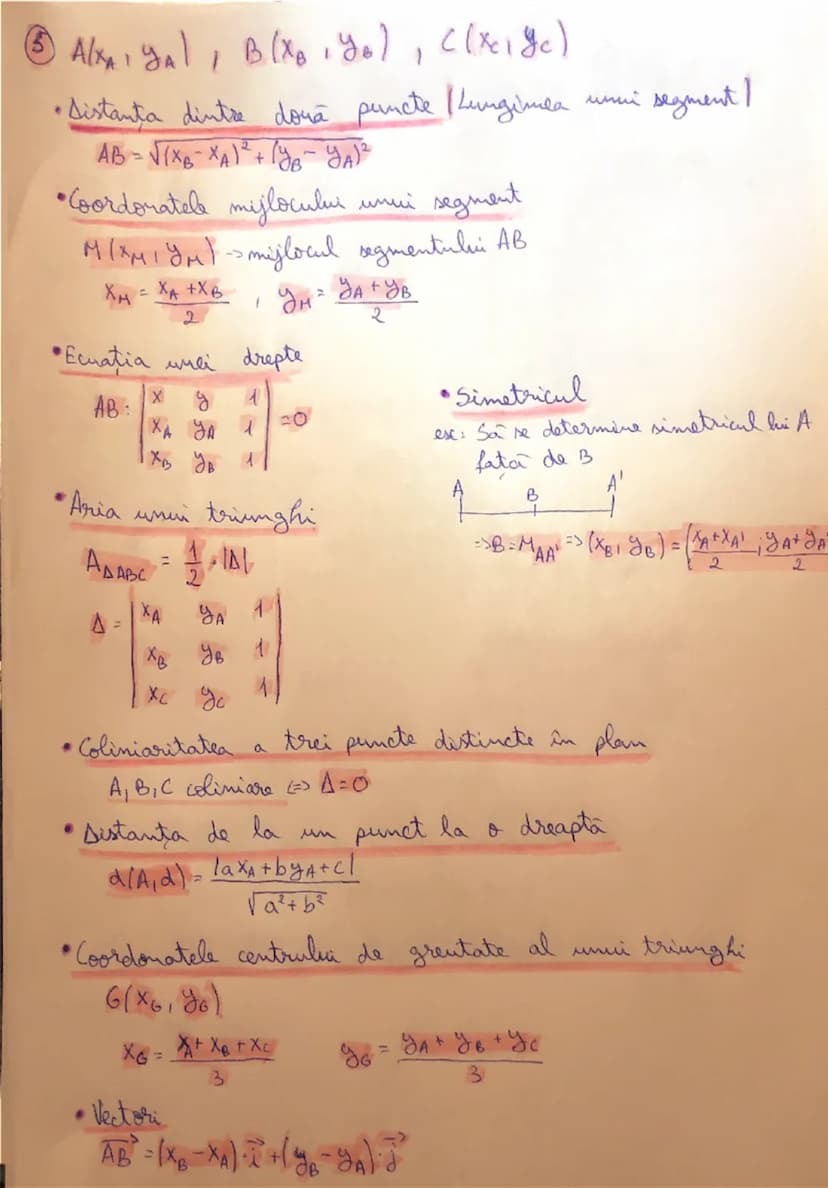 ⑤ A(x_A, y_A), B(x_B, y_B), C(x_C, y_C)
• Distanța dintre două puncte |Lungimea unui segment|
AB = √((x_B - x_A)² + (y_B - y_A)²)
• Coordonatele mijlocului unui segment
M(x_M, y_M) -> mijlocul segmentului AB
x_M = (x_A + x_B)/2 , y_M = (y_A + y_B)/2
• Ecuația unei drepte
AB: | x y 1 |
| x_A y_A 1 | = 0
| x_B y_B 1 |
• Simetricul
ex: Să se determine simetricul lui A
față de B
A B A'
=> B = M_AA' => (x_B, y_B) = ((x_A + x_A')/2 ; (y_A + y_A')/2
• Aria unui triunghi
A_ΔABC = 1/2 · |Δ|
Δ = | x_A y_A 1 |
| x_B y_B 1 |
| x_C y_C 1 |
• Coliniaritatea a trei puncte distincte în plan
A, B, C coliniare <=> Δ = 0
• Distanța de la un punct la o dreaptă
d(A, d) = |ax_A + by_A + c| / √(a² + b²)
• Coordonatele centrului de greutate al unui triunghi
G(x_G, y_G)
x_G = (x_A + x_B + x_C)/3 y_G = (y_A + y_B + y_C)/3
• Vectori
AB⃗ = (x_B - x_A)·i⃗ + (y_B - y_A)·j⃗